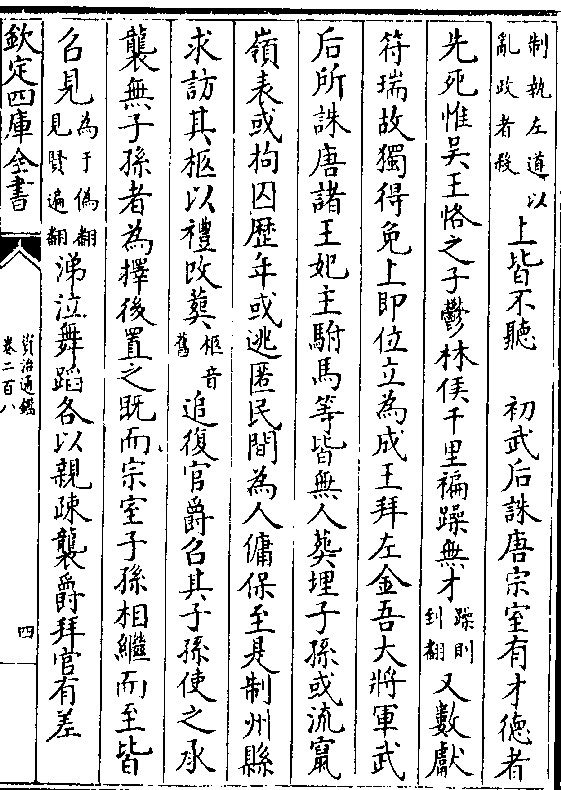 制執左道以亂政者殺上皆不聽　初武后誅唐宗室有才德者
先死惟吴王恪之子鬱林侯千里褊躁無才躁則到翻又數獻
符瑞故獨得免上即位立為成王拜左金吾大將軍武
后所誅唐諸王妃主駙馬等皆無人葬埋子孫或流竄
嶺表或拘囚歷年或逃匿民間為人傭保至是制州縣
求訪其柩以禮改葬柩音舊追復官爵召其子孫使之承
襲無子孫者為擇後置之既而宗室子孫相繼而至皆
召見為于偽翻見賢遍翻涕泣舞蹈各以親疎襲爵拜官有差
欽定四庫全書
資治通鑑
卷二百八
四